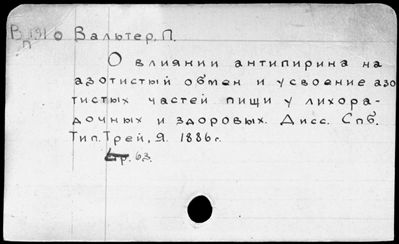 В 191 о Вальтер, П.
п
О влиянии антипирина на
азотистый обмен и усвоение азо
тистых частей пищи у лихора-
дочных и здоровых. Дисс. Спб.
Тип. Трей, Я. 1886 г.
63.